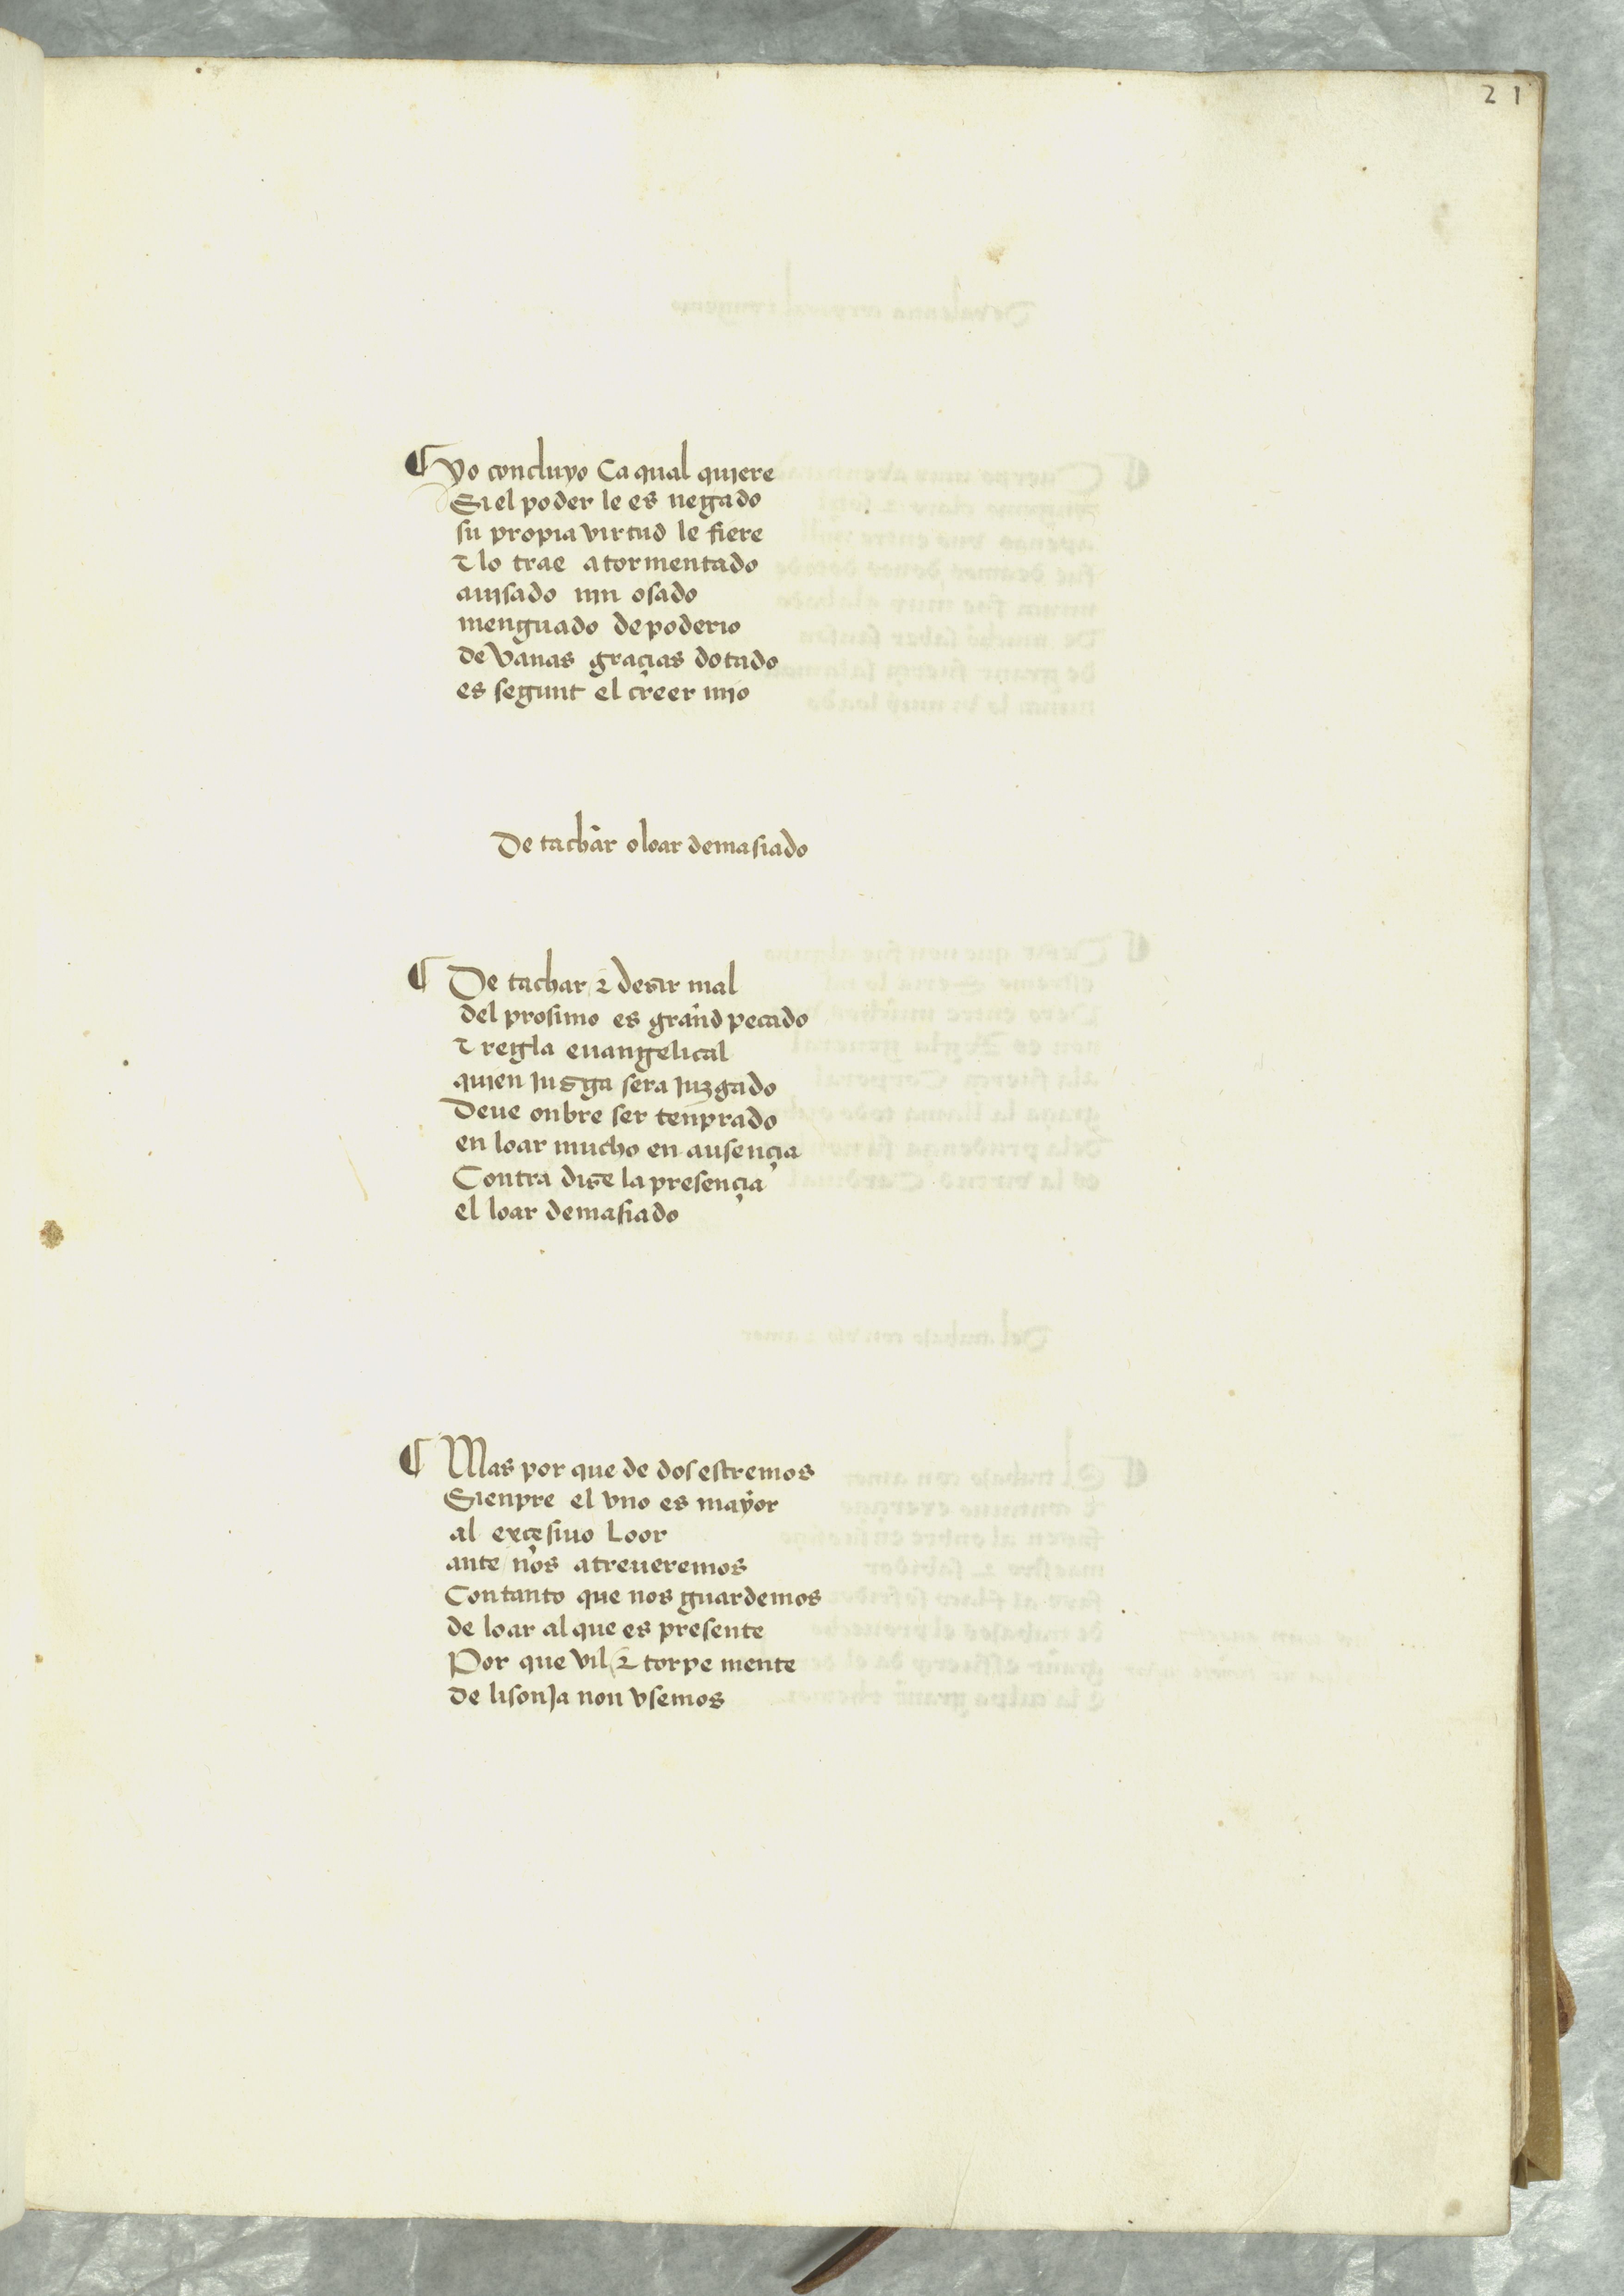 21
¶ yo concluyo Ca qual quiere
Si el poder le es negado
su propia virtud le fiere
τ lo trae atormentado
auisado nin osado
menguado de poderio
de Vanas graçias dotado
es segunt el creer mio
De tachar o loar demasiado
¶ De tachar τ desir mal
del prosimo es grand pecado
τ regla euangelical
quien Jusga sera Juzgado
Deue onbre ser tenprado
en loar mucho en ausençia
Contra dise la presençia
el loar demasiado
¶ Mas por que de dos estremos
Sienpre el vno es mayor
al exçesiuo Loor
ante nos atreueremos
Contanto que nos guardemos
de loar al que es presente
Por que vil τ torpe mente
de lisonJa non vsemos